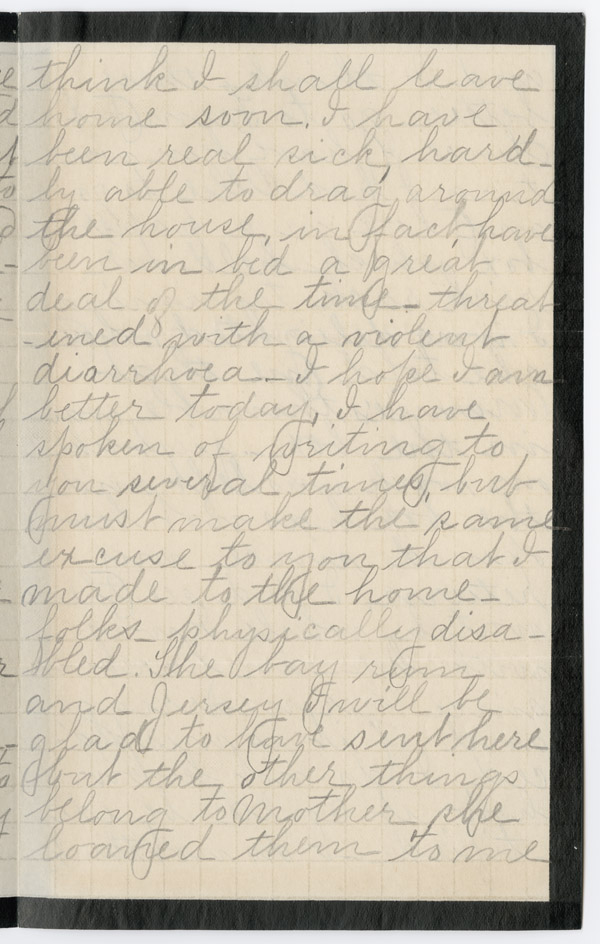 think I shall leave
home soon. I have
been real sick, hard-
ly able to drag around
the house, in fact have
been in bed a great
deal of the time - threat
-ened with a violent
diarrhoea - I hope I am
better today, I have
spoken of writing to
you several times, but
must make the same
excuse to you that I
made to the home-
folks - physically disa-
bled. The bay rum
and Jersey I will be
glad to have sent here
but the other things
belong to Mother she
loaned them to me